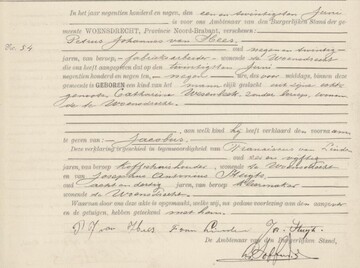 In het jaar negentien honderd en negen, den een en twintigsten Juni
is voor ons Ambtenaar van den Burgerlijken Stand der ge-
meente WOENSDRECHT, Provincie Noord-Brabant, verschenen:
Petrus Johannes van Hees
No. 54
oud negen en twintig
jaren, van beroep fabrieksarbeider wonende te Woensdrecht
die ons heeft aangegeven dat op den twintigsten Juni
negentien honderd en negen, ten negen ure, des voor middags, binnen deze
gemeente is GEBOREN een kind van het mannelijk geslacht uit zijne echt
genoote Catharina zonder beroep, wonen
de te Woensdrecht
aan welk kind hij heeft verklaard den voornaam
te geven van Jacobus
Deze verklaring is geschied in tegenwoordigheid van Franciscus van Linden
oud zes en vijftig
jaren, van beroep koffiehuishouder wonende te Woensdrecht
en van Josephus Antonius Stuijts
oud en dertig jaren, van beroep kleermaker
wonende te Woensdrecht
Waarvan door ons deze akte is opgemaakt, welke wij, na gedane voorlezing aan den aangever
en de getuigen, hebben geteekend met hem.
P J van Hees F van Linden Jos. Stuijts
De Ambtenaar van den Burgerlijken Stand,